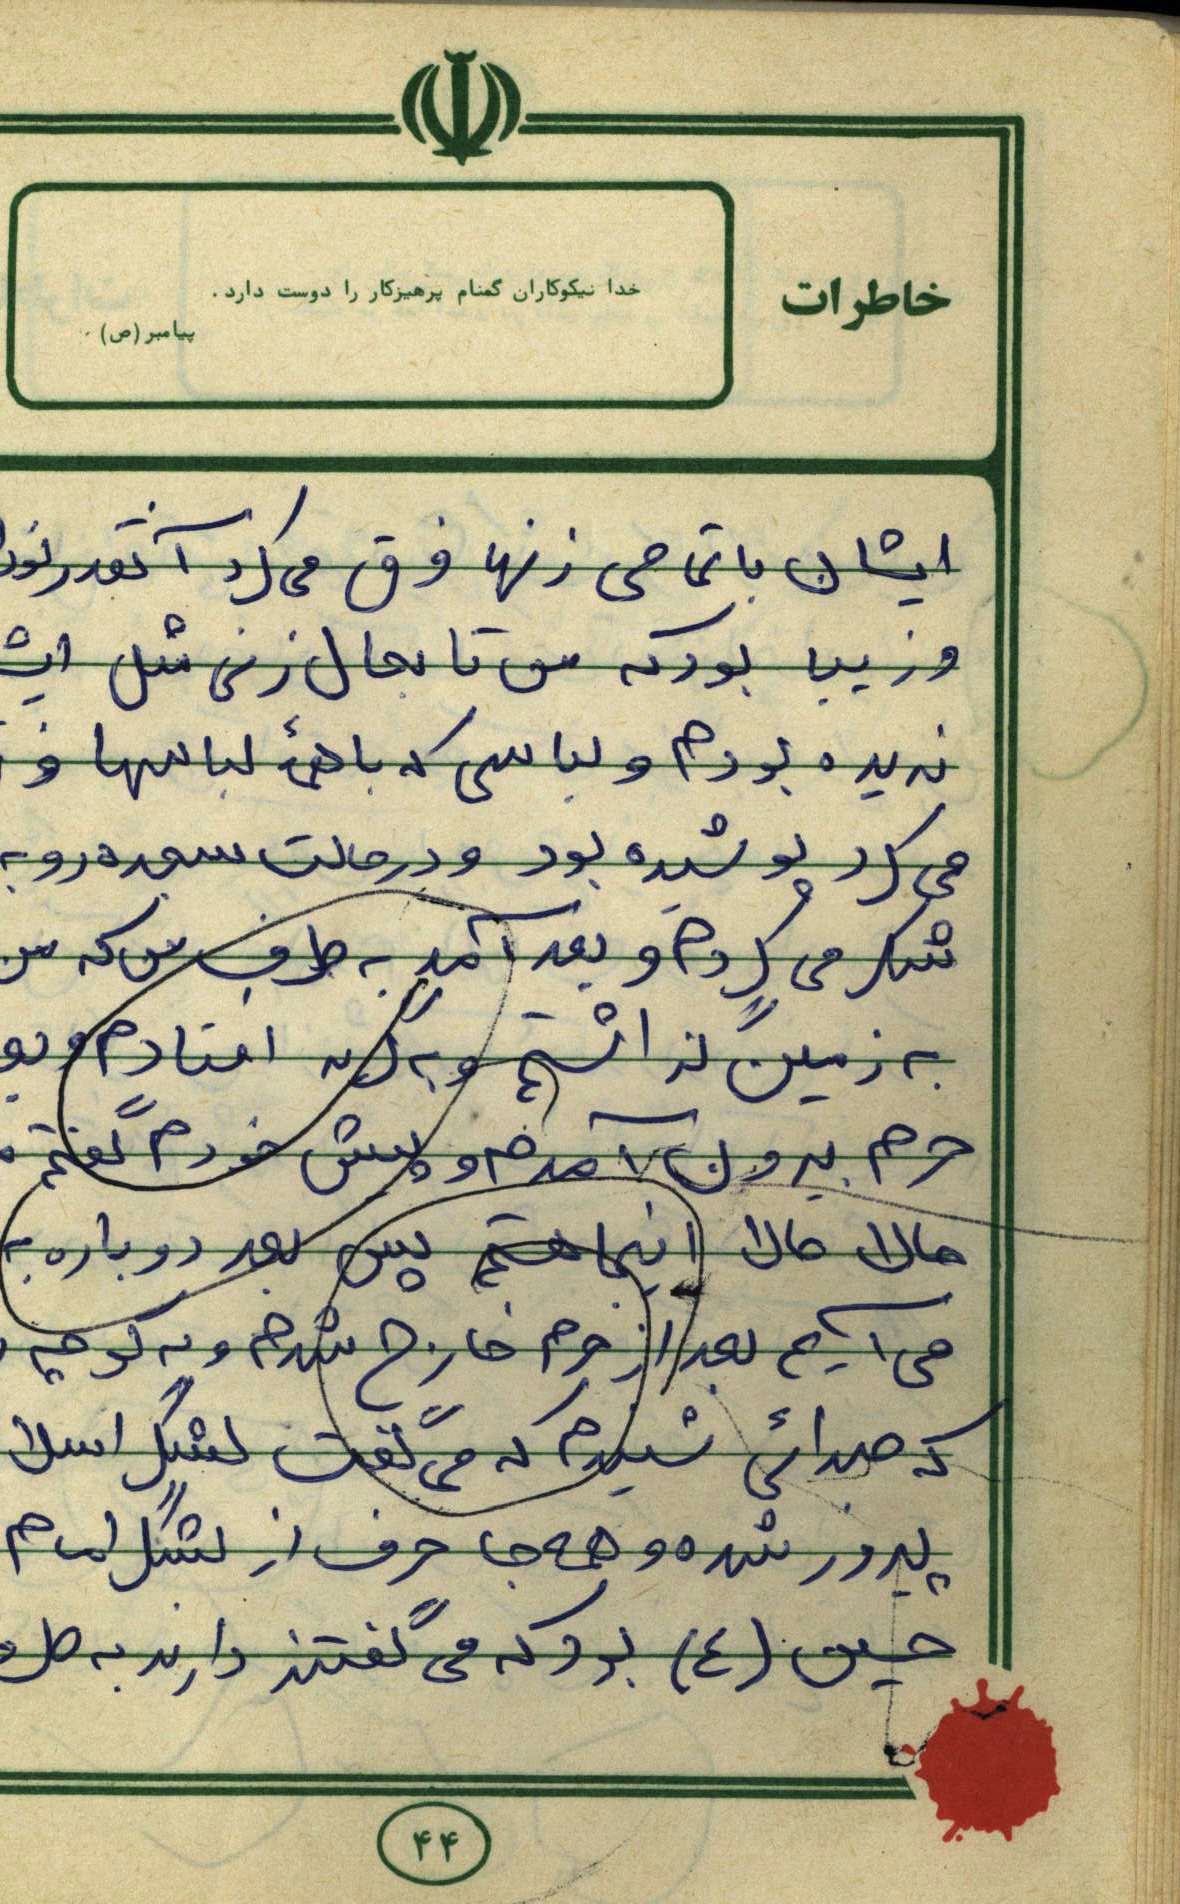 خاطرات
خدا نیکوکاران گمنام پرهیزکار را دوست دارد.
پیامبر (ص)
ایشان با تمامی زنها فرق می کرد آنقدر
و زیبا بود که من تا بحال زنی مثل
ندیده بودم و لباسی که با همهٔ لباسها
می کرد پوشیده بود و در حالت سجده رو به
شکر می کردم و بعد آمد به طرف من که من
به زمین گذاشتم و به گریه افتادم و
حرم بیرون آمدم و پیش خودم گفتم
حالا حالا اینجا هستم پس بعد دوباره به
می آیم بعد از حرم خارج شدم و به کوچه
که صدائی شنیدم که می گفت لشگر
پیروز شده و همه جا حرف از لشگر امام
حسین (ع) بود که می گفتند دارند به
۴۴